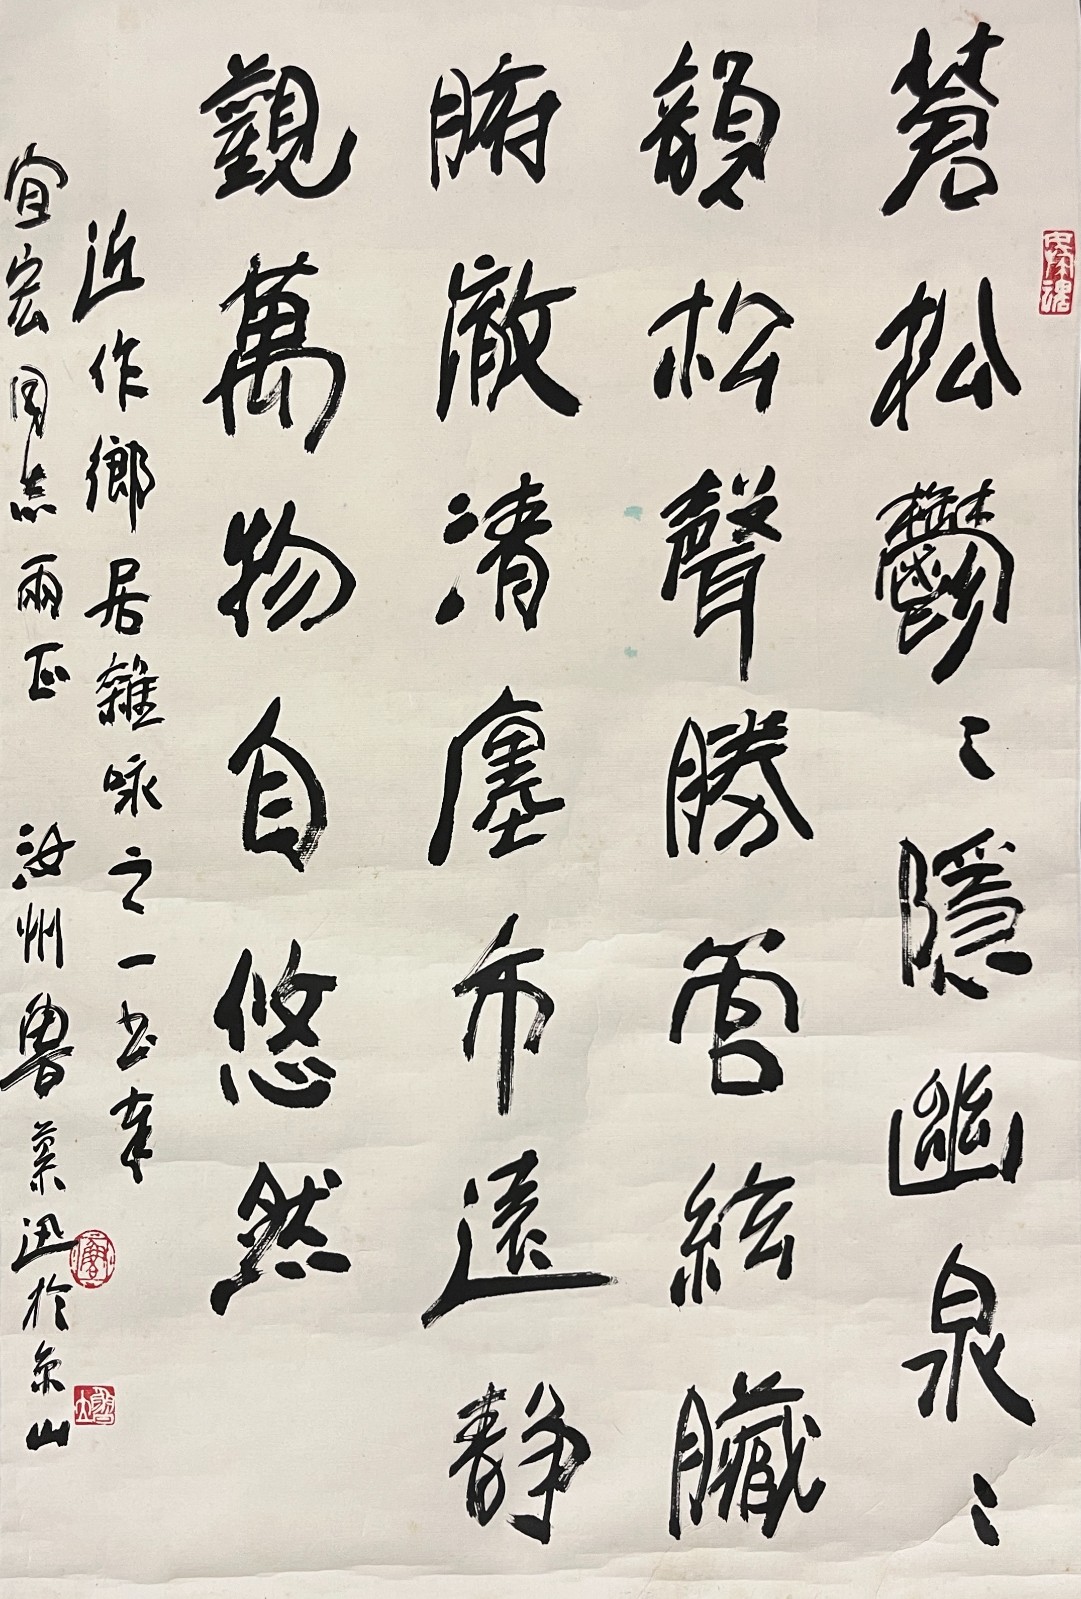 蒼松鬱〻隱幽泉〻
韻松聲勝管絃臟
腑澈清塵市遠靜
觀萬物自悠然
近作鄉居雜咏之一書奉
宜宏同志兩正 汝州魯慕迅於京山